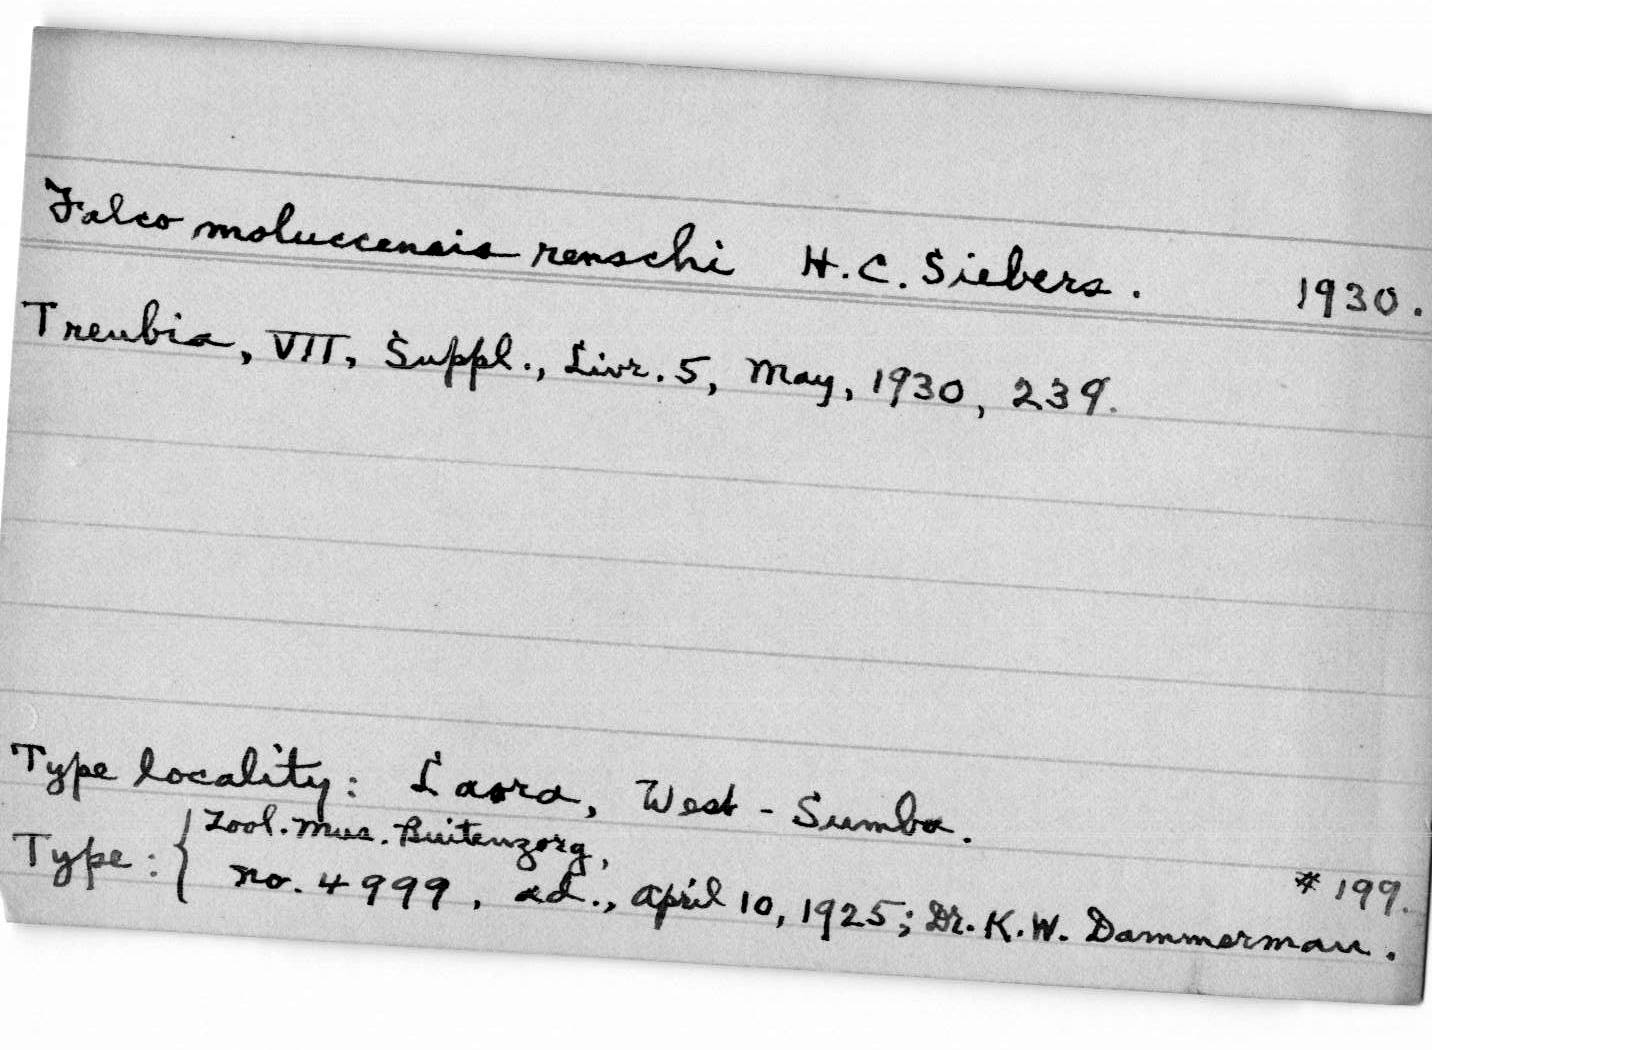 Falco moluccensis renschi H. C. Siebers. 1930.
Treubia, VII, Suppl., Livr. 5, May, 1930, 239.
Type locality: Laora, West-Sumba.
Type: { Zool. Mus. Buitenzorg,
no. 4999, ad., April 10, 1925; Dr. K. W. Dammerman. # 199.